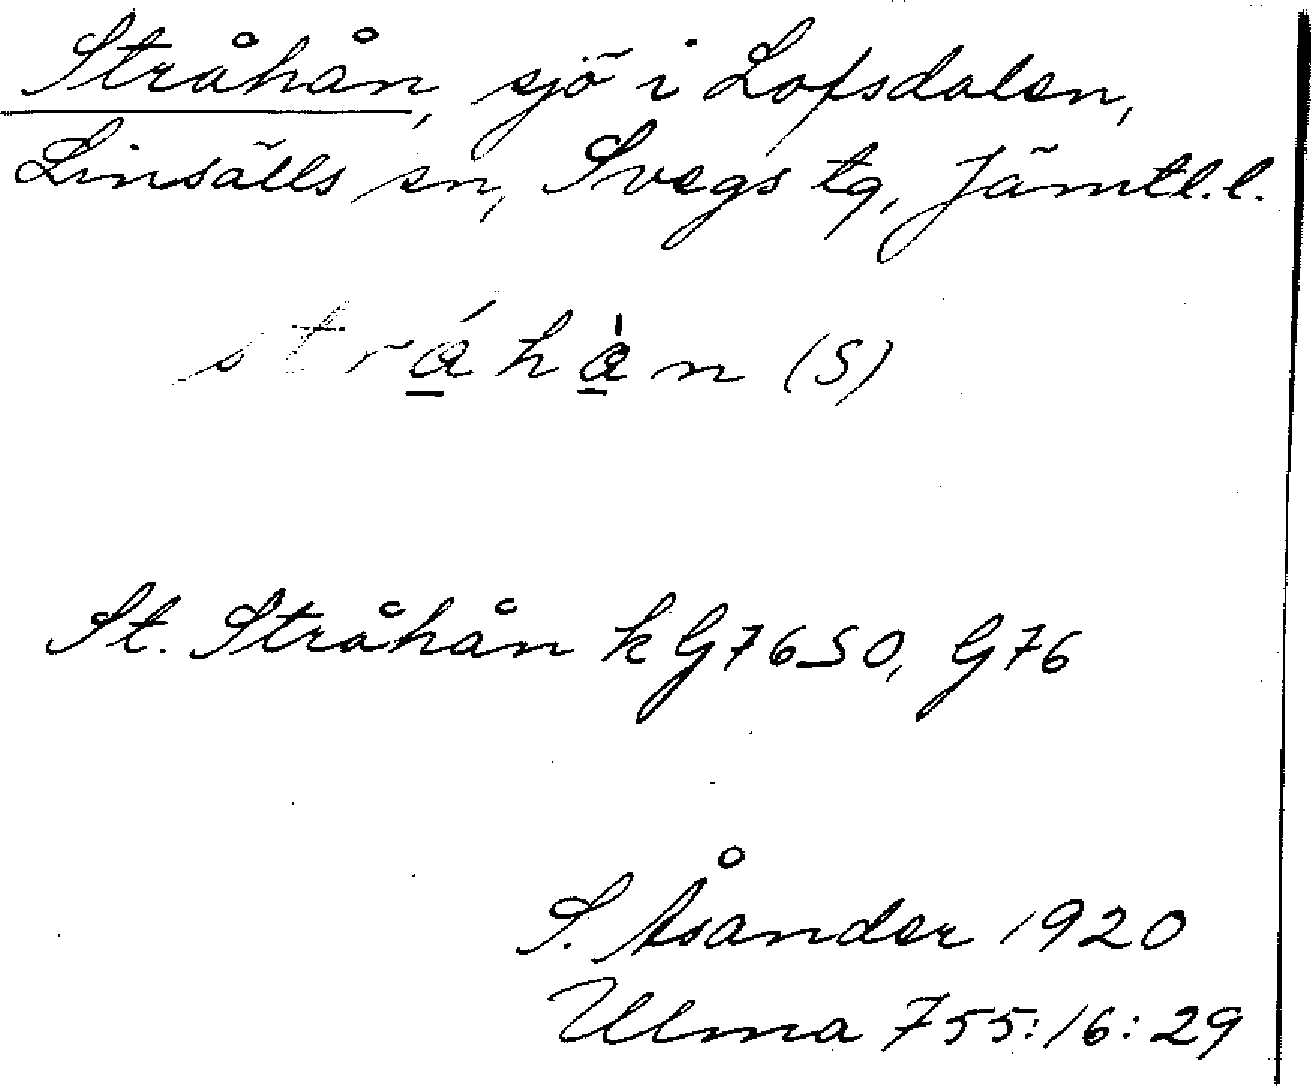 Stråhån, sjö i Lofsdalen,
Linsälls sn, Svegs tg, Jämtl.l.
stráhàn (S)
St. Stråhån k G76SO, G76
S. Åsander 1920
Ulma 755:16:29